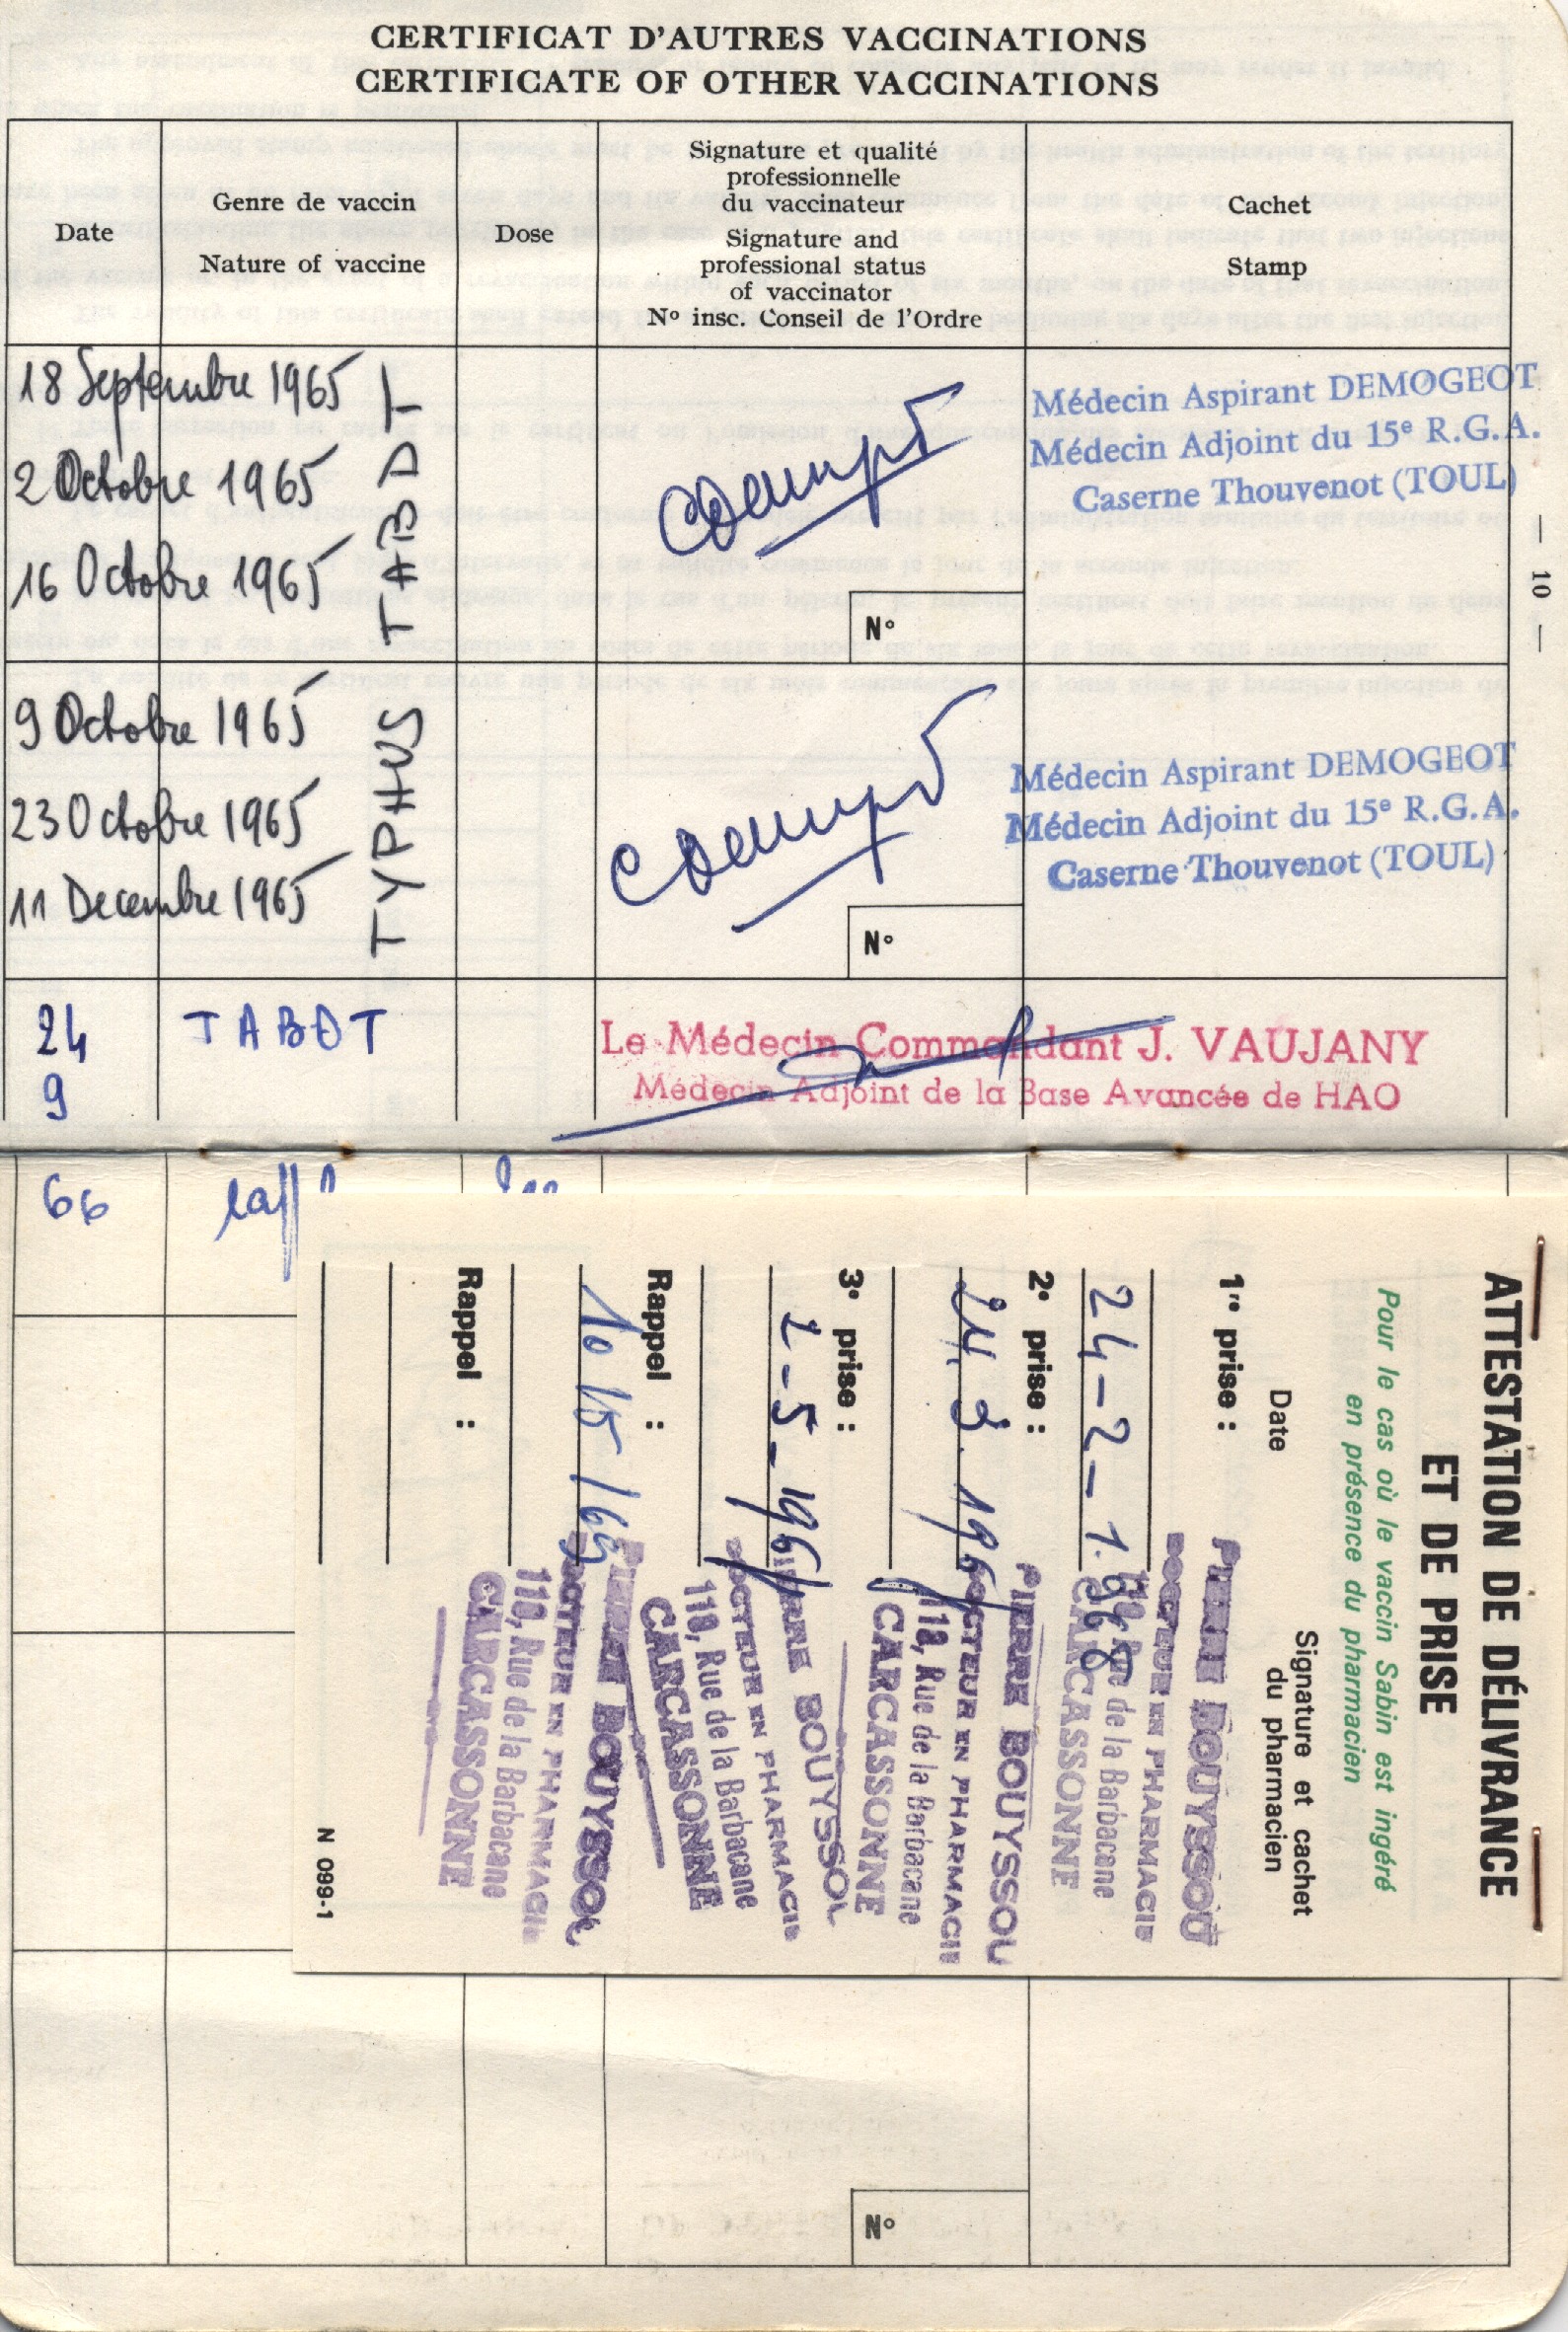 CERTIFICAT D'AUTRES VACCINATIONS
CERTIFICATE OF OTHER VACCINATIONS
Date
Genre de vaccin
Nature of vaccine
Dose
Signature et qualité
professionnelle
du vaccinateur
Signature and
professional status
of vaccinator
Nº insc. Conseil de l'Ordre
Cachet
Stamp
18 Septembre 1965
2 Octobre 1965
16 Octobre 1965
TABDT
Nº
Médecin Aspirant DEMOGEOT
Médecin Adjoint du 15e R.G.A.
Caserne Thouvenot (TOUL)
— 10 —
9 Octobre 1965
23 Octobre 1965
11 Decembre 1965
TYPHUS
Nº
Médecin Aspirant DEMOGEOT
Médecin Adjoint du 15e R.G.A.
Caserne Thouvenot (TOUL)
24
9
66
TABDT
Le Médecin Commandant J. VAUJANY
Médecin Adjoint de la Base Avancée de HAO
ATTESTATION DE DÉLIVRANCE
ET DE PRISE
Pour le cas où le vaccin Sabin est ingéré
en présence du pharmacien
Date
Signature et cachet
du pharmacien
1re prise :
24-2-1968
PIERRE BOUYSSOU
DOCTEUR EN PHARMACIE
118, Rue de la Barbacane
CARCASSONNE
2e prise :
24.3.196
PIERRE BOUYSSOU
DOCTEUR EN PHARMACIE
118, Rue de la Barbacane
CARCASSONNE
3e prise :
2-5-196
PIERRE BOUYSSOU
DOCTEUR EN PHARMACIE
118, Rue de la Barbacane
CARCASSONNE
Rappel :
PIERRE BOUYSSOU
DOCTEUR EN PHARMACIE
118, Rue de la Barbacane
CARCASSONNE
Rappel :
N 099-1
Nº